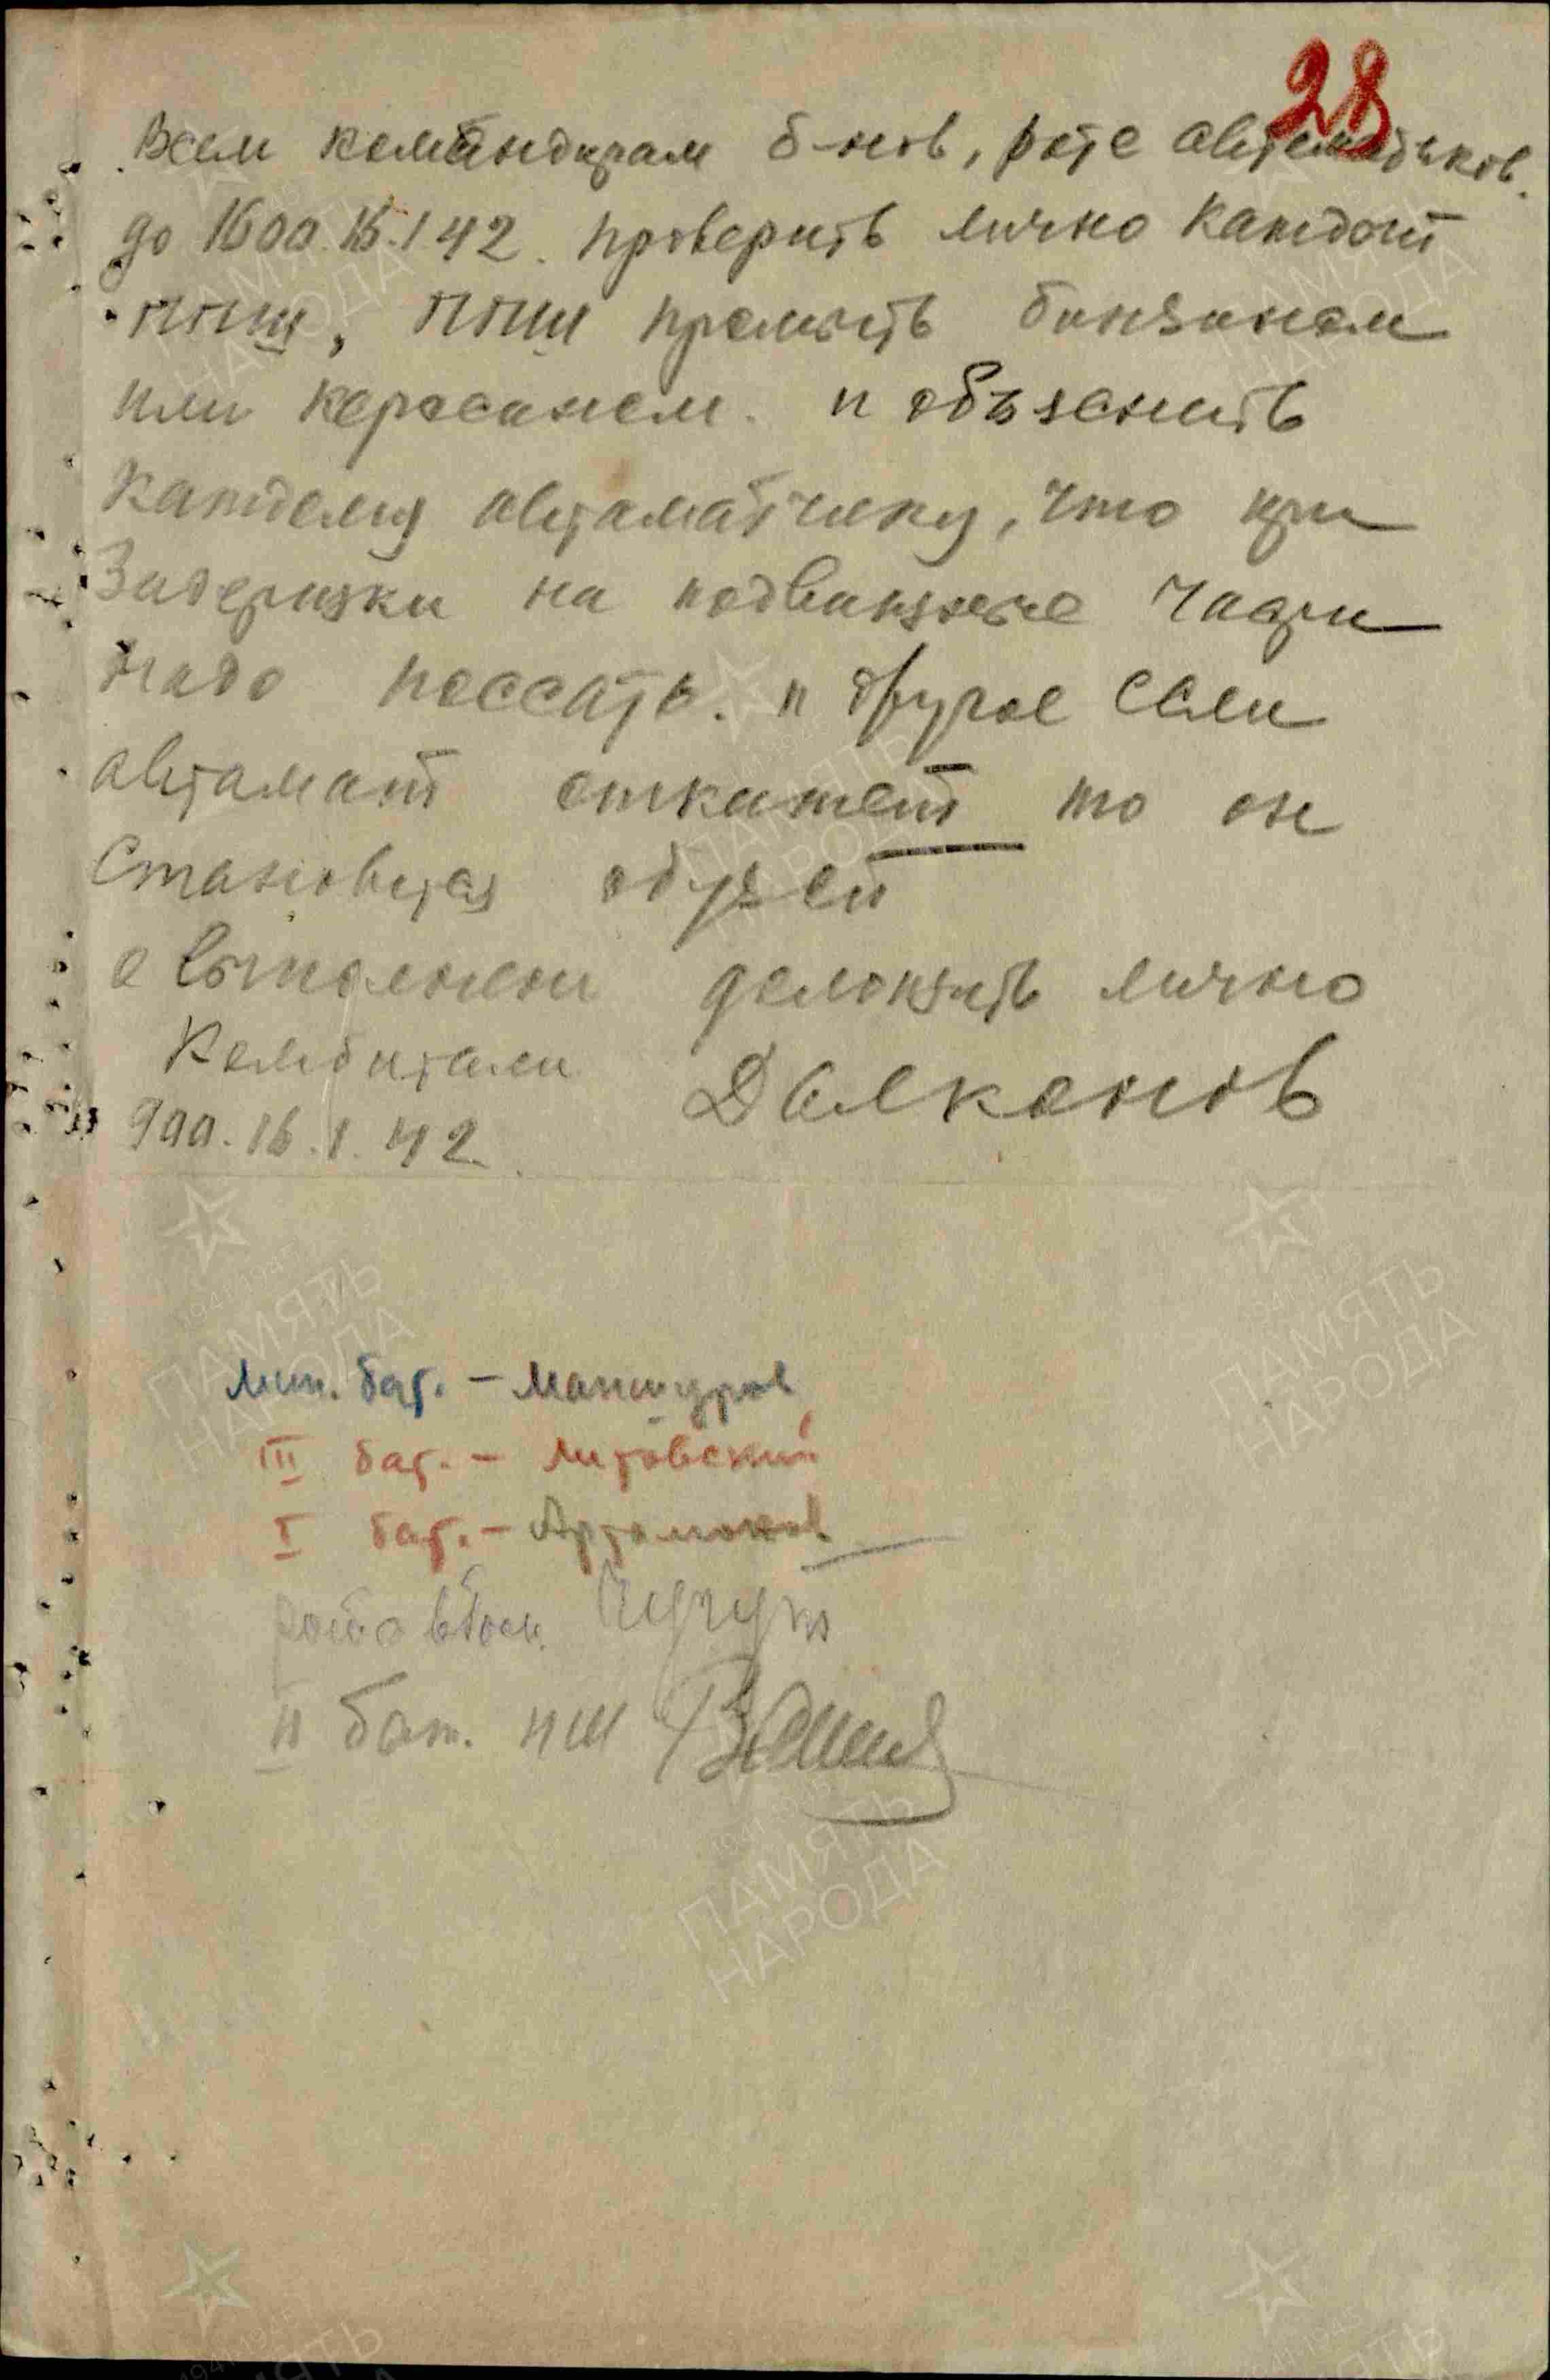 28
Всем командирам б-нов, роте автоматчиков.
до 1600. 16.1 42. проверить лично каждый
ППШ, ППШ промыть бинзином
или керосином. и объяснить
каждому автоматчику, что при
Задержки на подвижные части
надо поссать. и другое если
автомат откажет то он
Становится обузей
о выполнени доложить лично
Комбатами
900. 16.1.42 Далконов
Мин. бат. - Маншуров
III бат. - Литовский
I бат. - Артомонов
рота автом.
II бат. НШ
ПАМЯТЬ
НАРОДА